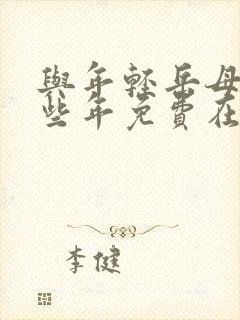 與年輕岳母
些年免費在
李健